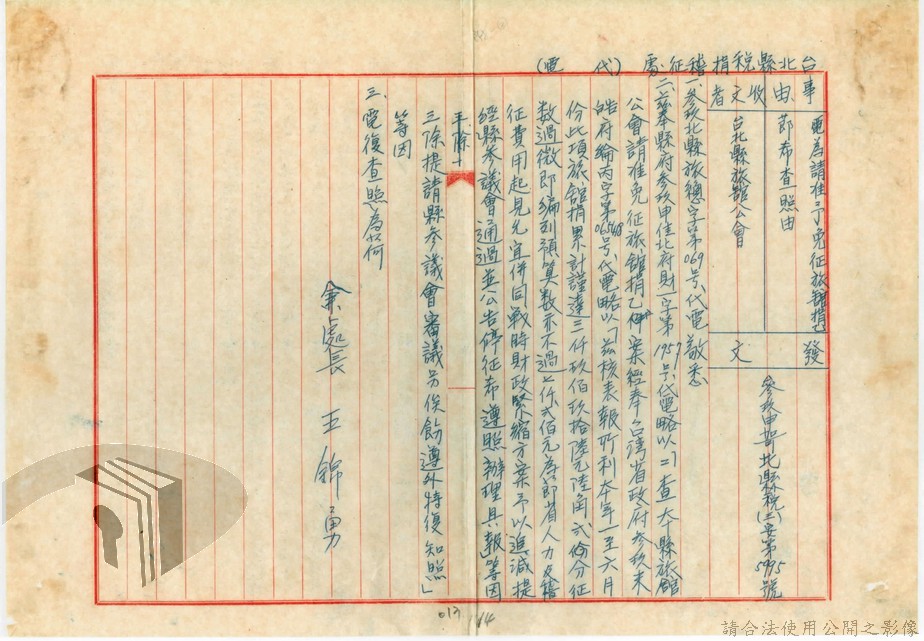 台北縣稅捐稽征處（代電）
事由
電為請准予免征旅館捐
即希查照由
收文者
台北縣旅館公會
發文
參玖申哿北縣稅(三)安第5995號
一、參玖北縣旅總字第069號代電敬悉
二、茲奉縣府參玖申佳北府財二字第1957號代電略以「查本縣旅館
公會請准免征旅館捐乙案經奉台灣省政府參玖未
皓府綸丙字第06548號代電略以「茲核表報所列本年一至六月
份此項旅館捐累計謹達三仟玖佰玖拾陸元陸角弍份分征
數過微即編列預算數亦不過七仟弍佰元為節省人力及稽
征費用起見允宜併同戰時財政緊縮方案予以追減提
經縣參議會通過並公告停征希遵照辦理具報」等因
三除提請縣參議會審議另俟飭遵外特復知照」
等因
三、電復查照為荷
兼處長 王錦勇
013
14
請合法使用公開之影像